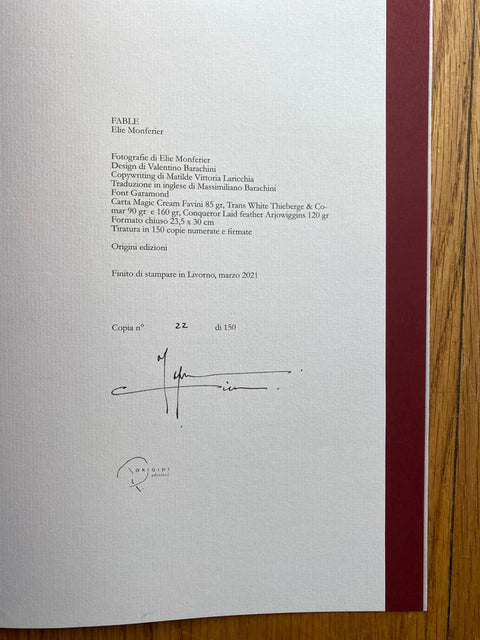 FABLE
Elie Monferier
Fotografie di Elie Monferier
Design di Valentino Barachini
Copywriting di Matilde Vittoria Laricchia
Traduzione in inglese di Massimiliano Barachini
Font Garamond
Carta Magic Cream Favini 85 gr, Trans White Thieberge & Co-
mar 90 gr e 160 gr, Conqueror Laid feather Arjowiggins 120 gr
Formato chiuso 23,5 x 30 cm
Tiratura in 150 copie numerate e firmate
Origini edizioni
Finito di stampare in Livorno, marzo 2021
Copia n° 22 di 150
ORIGINI
edizioni